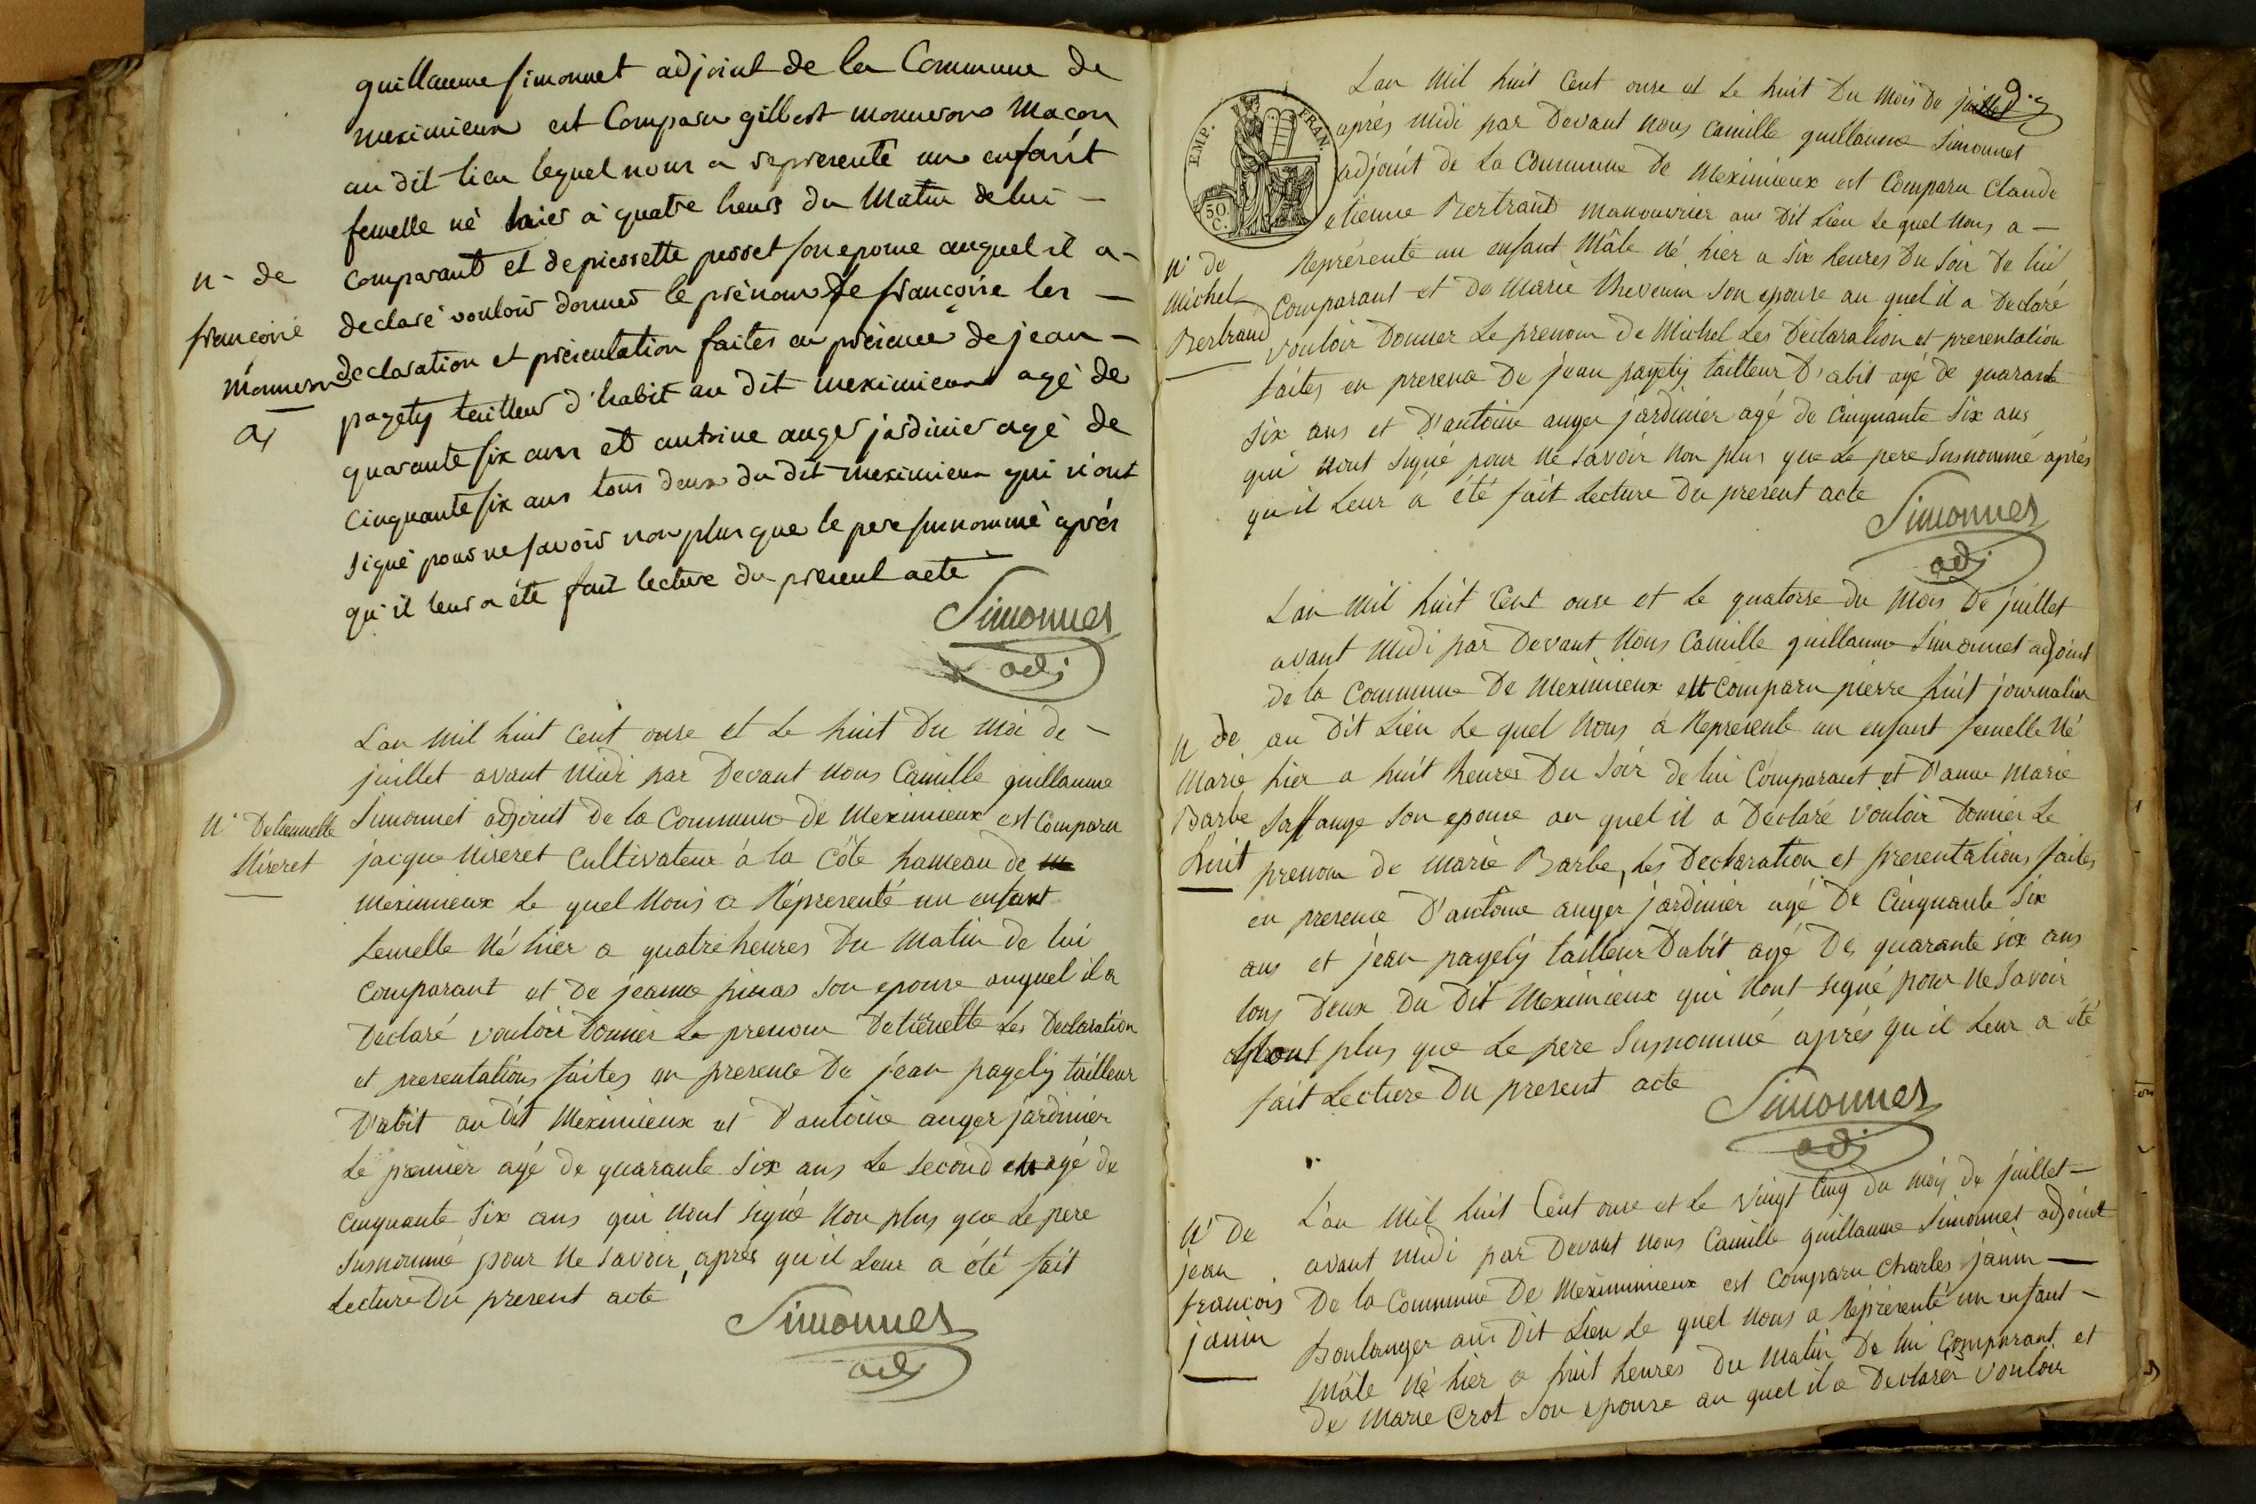 guillaume simonnet adjoint de la Commune de
meximieux est Comparu gilbert monneron Macon
au dit lieu lequel nous a représenté un enfant
femelle né hier à quatre heurs du Matin de lui
comparant et de pierrette perret son epouse auquel il a
declaré vouloir donner le prénom de françoise les
declaration et présentation faites en présence de jean
pagety tailleur d'habit au dit meximieux agé de
quarante six ans et antoine auger jardinier agé de
Cinquante six ans tous deux du dit meximieux qui n'ont
signé pour ne savoir non plus que le pere susnommé après
qu'il leur a été fait lecture du présent acte
Simonnet
adj
N de
françoise
Monneron
L'an mil huit cent onse et Le huit Du moi de
juillet avant midi par Devant nous Camille guillaume
Simonnet adjoint De la Commune de Meximieux est Comparu
jacque Niseret Cultivateur à la Côte hameau de
meximieux Le quel Nous a Réprésenté un enfant
femelle Né hier a quatre heures Du Matin de lui
comparant et De jeanne pinas son epouse auquel il a
Declaré vouloir Donner Le prenom Detiennette Les Declaration
et presentations faites en presence De jean pagety tailleur
D'abit au Dit Meximieux et D'antoine auger jardinier
Le premier agé de quarante Six ans Le second agé de
cinquante Six ans qui nont signé Non plus que Le pere
susnommé pour Ne Savoir, après qu'il Leur a été fait
Lecture Du present acte
Simonnet
adj
N Detiennette
Niseret
EMP. FRAN.
50 C.
L'an Mil huit Cent onse et Le huit Du Mois De juillet
après midi par Devant nous camille guillaume Simonnet
adjoint de La Commune De Meximieux est Comparu Claude
etienne Bertrand manouvrier au Dit Lieu Le quel Nous a
Représenté un enfant Mâle Né hier a Six heures Du Soir De lui
Comparant et De Marie thevenin Son epouse au quel il a Declaré
vouloir Donner Le prenom De Michel Les Déclaration et presentation
faites en presence De jean pagety tailleur D'abit agé de quarante
Six ans et D'antoine auger jardinier agé de Cinquante Six ans
qui Nont signé pour Ne Savoir Non plus que Le pere Susnommé après
qu'il Leur a été fait Lecture Du present acte
Simonnet
adj
N De
Michel
Bertrand
L'an Mil huit Cent onse et Le quatorse du Mois De juillet
avant Midi par Devant Nous Camille guillaume Simonnet adjoint
de la Commune De Meximieux est Comparu pierre huit journalier
au Dit Lieu Le quel Nous a Représenté un enfant femelle Né
hier a huit heures Du Soir de lui Comparant et D'anne Marie
son epouse au quel il a Declaré vouloir Donner Le
prenom de Marie Barbe, Les Declaration et presentations faites
en presence D'antoine auger jardinier agé De Cinquante Six
ans et jean pagety tailleur Dabit agé De quarante six ans
tous Deux Du Dit Meximieux qui Nont signé pour Ne Savoir
plus que Le pere Susnommé après qu'il Leur a été
fait Lecture Du present acte
Simonnet
adj
N de
Marie
Barbe
huit
L'an Mil huit Cent onse et Le vingt Cinq du Mois De juillet
avant Midi par Devant Nous Camille guillaume Simonnet adjoint
De la Commune De Meximmieux est Comparu Charles janin
Boulanger au Dit Lieu Le quel Nous a Réprésenté un enfant
Mâle Né hier a huit heures Du Matin De lui Comparant et
De Marie Crot Son epouse au quel il a Declarer vouloir
N De
jean
françois
janin